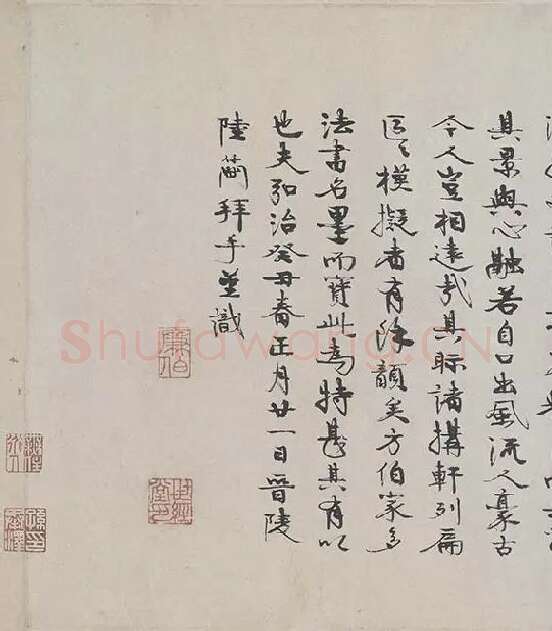 其景與心融若自口出風流人豪古
今人豈相遠哉其眎諸搆軒列扁
區〻模擬者有除顏矣方伯家多
法書名墨而寶此爲特甚其有以
也夫弘治癸丑春正月廿一日晉陵
陸蕳拜手並識
Shufawang.CN